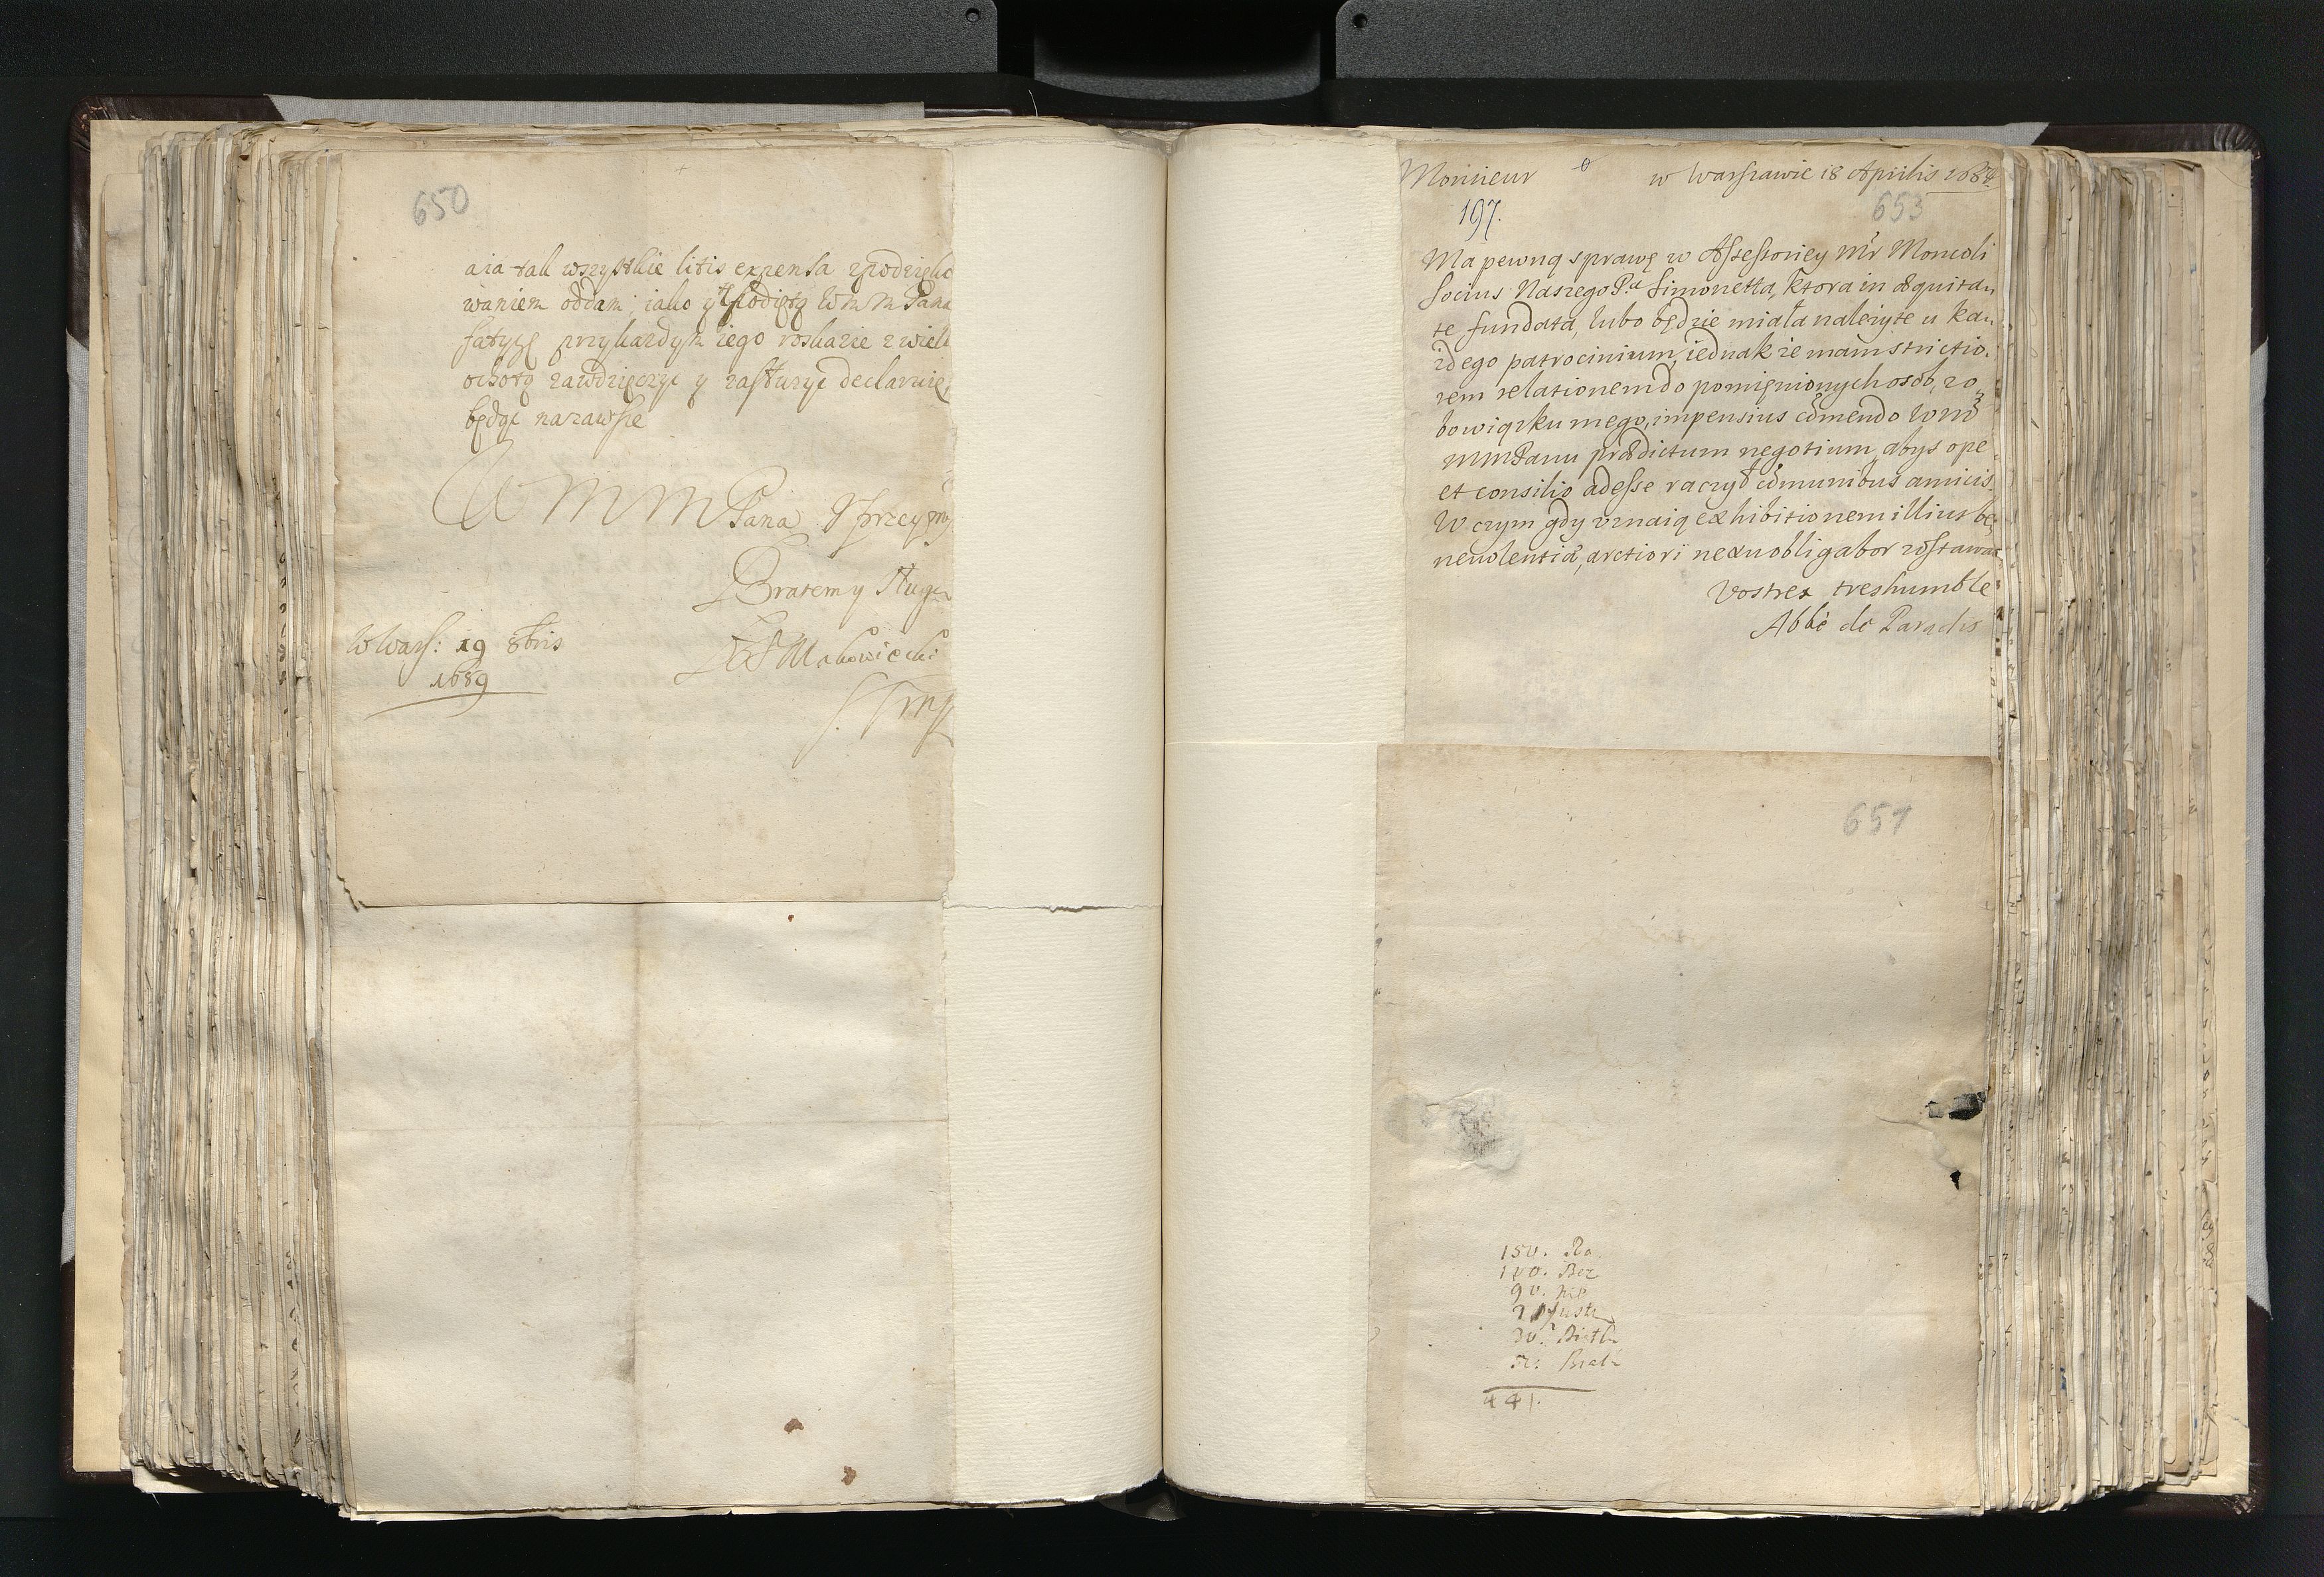 650
aia tak wszystkie litis expensa zpodzięko
waniem oddam; iako y podiętą W m m Pana
fatygę przykazdym iego roskazie zwielk
ochotą zawdzięczyć y zasłuzyć declaruię
będąc nazawsze
W M M Pana Uprzeymy
Bratem y Sługą
Makowiecki
W Wars: 19 8bris
1689
Monsieur w Warszawie 18 Aprilis 168
197.
653
Ma pewną sprawę w Assessoriey Mr Moncoli
Socius Naszego Pa Simonetta, ktora in æquita,,
te fundata, lubo będzie miała nalezyte u kaz,,
zdego patrocinium, iednak ze mam strictio,
rem relationem do pomięnionych osob, zo,,
bowiązku mego, impensius cõmendo Wm
MMPanu prædictum negotium, abys ope
et consilio adesse raczył cõmunibus amicis.
W czym gdy vznaią exhibitionem illius be,,
neuolentiæ, arctiori nexu obligabor zostawac
Vostres treshumble
Abbé de Paradis
651
150. Ra.
100. Bez
90.
441.